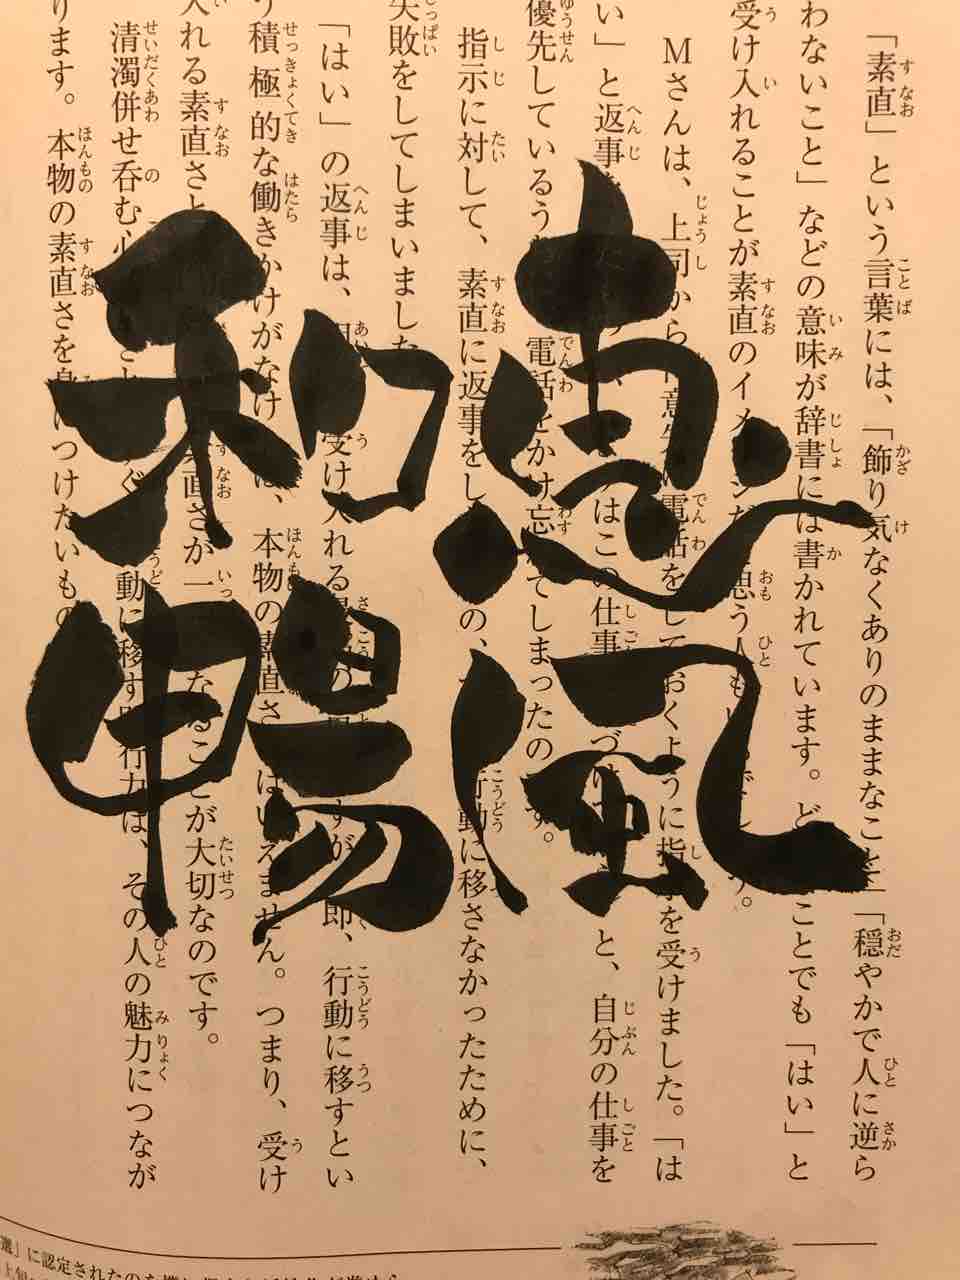 恵風
和暢
「素直」という言葉には、「飾り気なくありのままなこと」「穏やかで人に逆ら
わないこと」などの意味が辞書には書かれています。ど ことでも「はい」と
受け入れることが素直のイメージだと思う人も でしょう。
Mさんは、上司から 電話をしておくように指示を受けました。「は
い」と返事 はこの仕事 と、自分の仕事を
優先しているう 電話をかけ忘れてしまったのです。
指示に対して、素直に返事をし の、 行動に移さなかったために、
失敗をしてしまいました
「はい」の返事は、 受け入れる の すが、即、行動に移すとい
う積極的な働きかけがなければ、本物の素直さとはいえません。つまり、受け
入れる素直さと 素直さが一 なることが大切なのです。
清濁併せ呑む心 動に移す 行力は、その人の魅力につなが
ります。本物の素直さを身につけたいもの
選」に認定されたのを機に